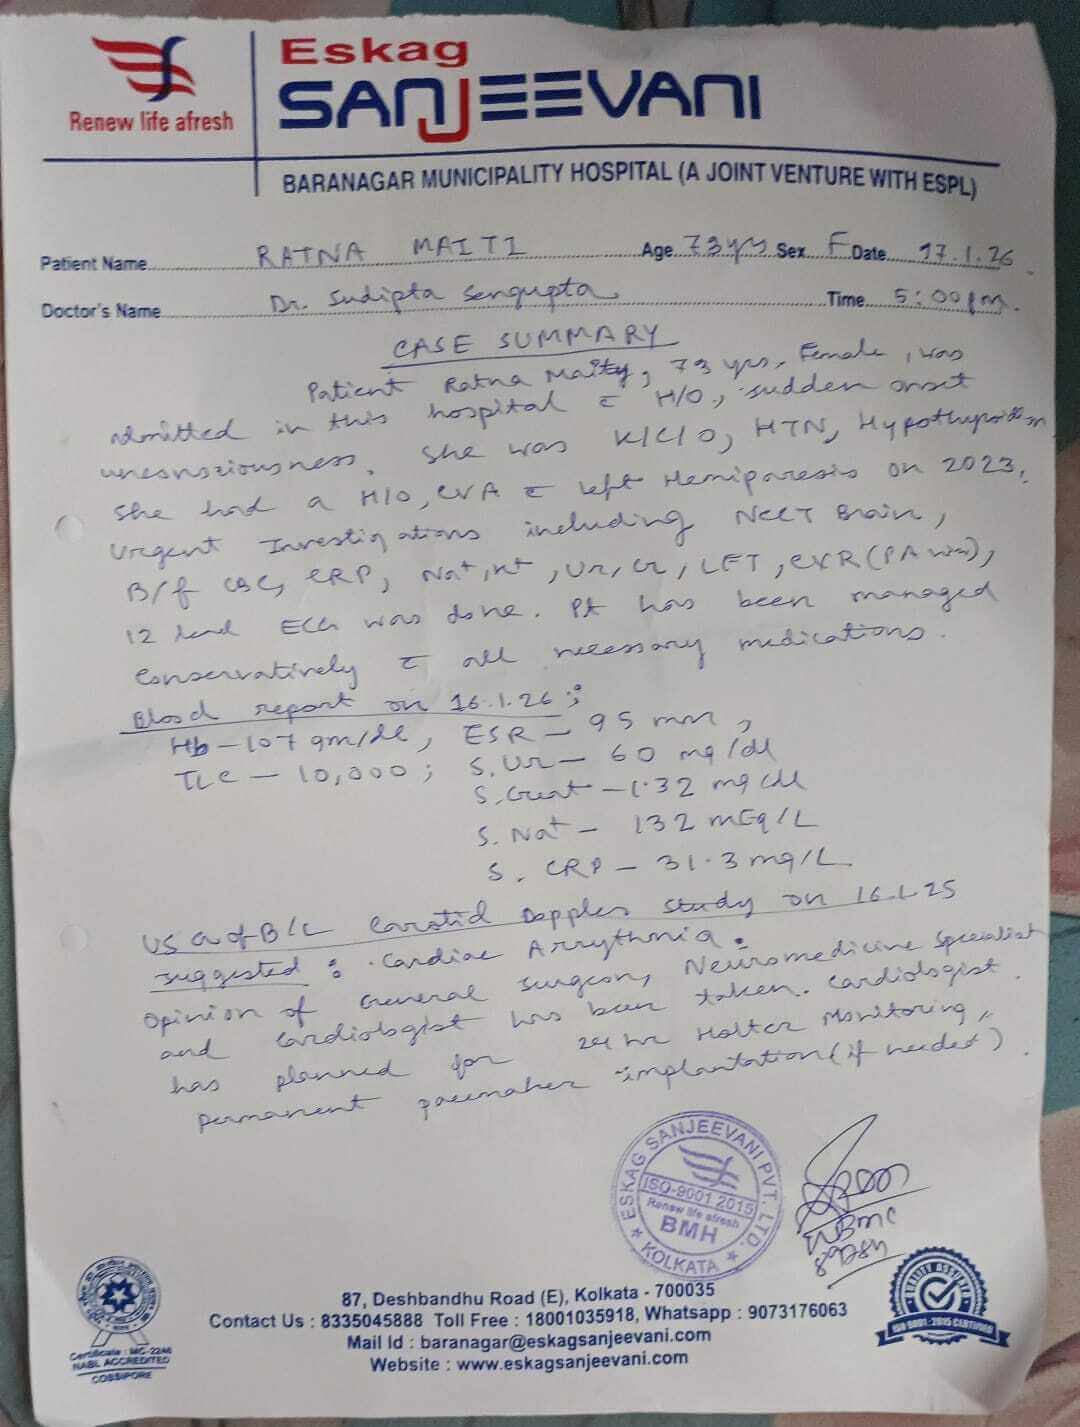 Eskag
SANJEEVANI
Renew life afresh
BARANAGAR MUNICIPALITY HOSPITAL (A JOINT VENTURE WITH ESPL)
Patient Name RATNA MAITI Age 73yrs Sex F Date 17.1.26
Doctor's Name Dr. Sudipta Sengupta Time 5:00pm.
CASE SUMMARY
Patient Ratna Maity, 73 yrs, Female, was
admitted in this hospital c̄ H/O, sudden onset
unconsciousness. She was K/C/O, HTN, Hypothyroidism
She had a H/O, CVA c̄ left Hemiparesis on 2023,
Urgent Investigations including NCCT Brain,
B/f CBC, CRP, Na+, K+, Ur, Cr, LFT, CXR (PA view),
12 lead ECG was done. Pt has been managed
conservatively c̄ all necessary medications.
Blood report on 16.1.26:
Hb - 10.7 gm/dl, ESR - 95 mm,
TLC - 10,000; S. Ur - 60 mg/dl
S. Creat - 1.32 mg/dl
S. Na+ - 132 mEq/L
S. CRP - 31.3 mg/L
USG of B/L Carotid Doppler study on 16.1.25
suggested: Cardiac Arrythmia.
Opinion of General Surgeon, Neuromedicine Specialist
and Cardiologist has been taken. Cardiologist
has planned for 24 hr Holter Monitoring,
permanent pacemaker implantation (if needed).
ESKAG SANJEEVANI PVT. LTD.
ISO-9001 2015
Renew life afresh
BMH
★ KOLKATA ★
WBMC
QUALITY ASSURED
ISO 9001:2015 CERTIFIED
Certificate : MC-2246
NABL ACCREDITED
COSSIPORE
87, Deshbandhu Road (E), Kolkata - 700035
Contact Us : 8335045888 Toll Free : 18001035918, Whatsapp : 9073176063
Mail Id : baranagar@eskagsanjeevani.com
Website : www.eskagsanjeevani.com